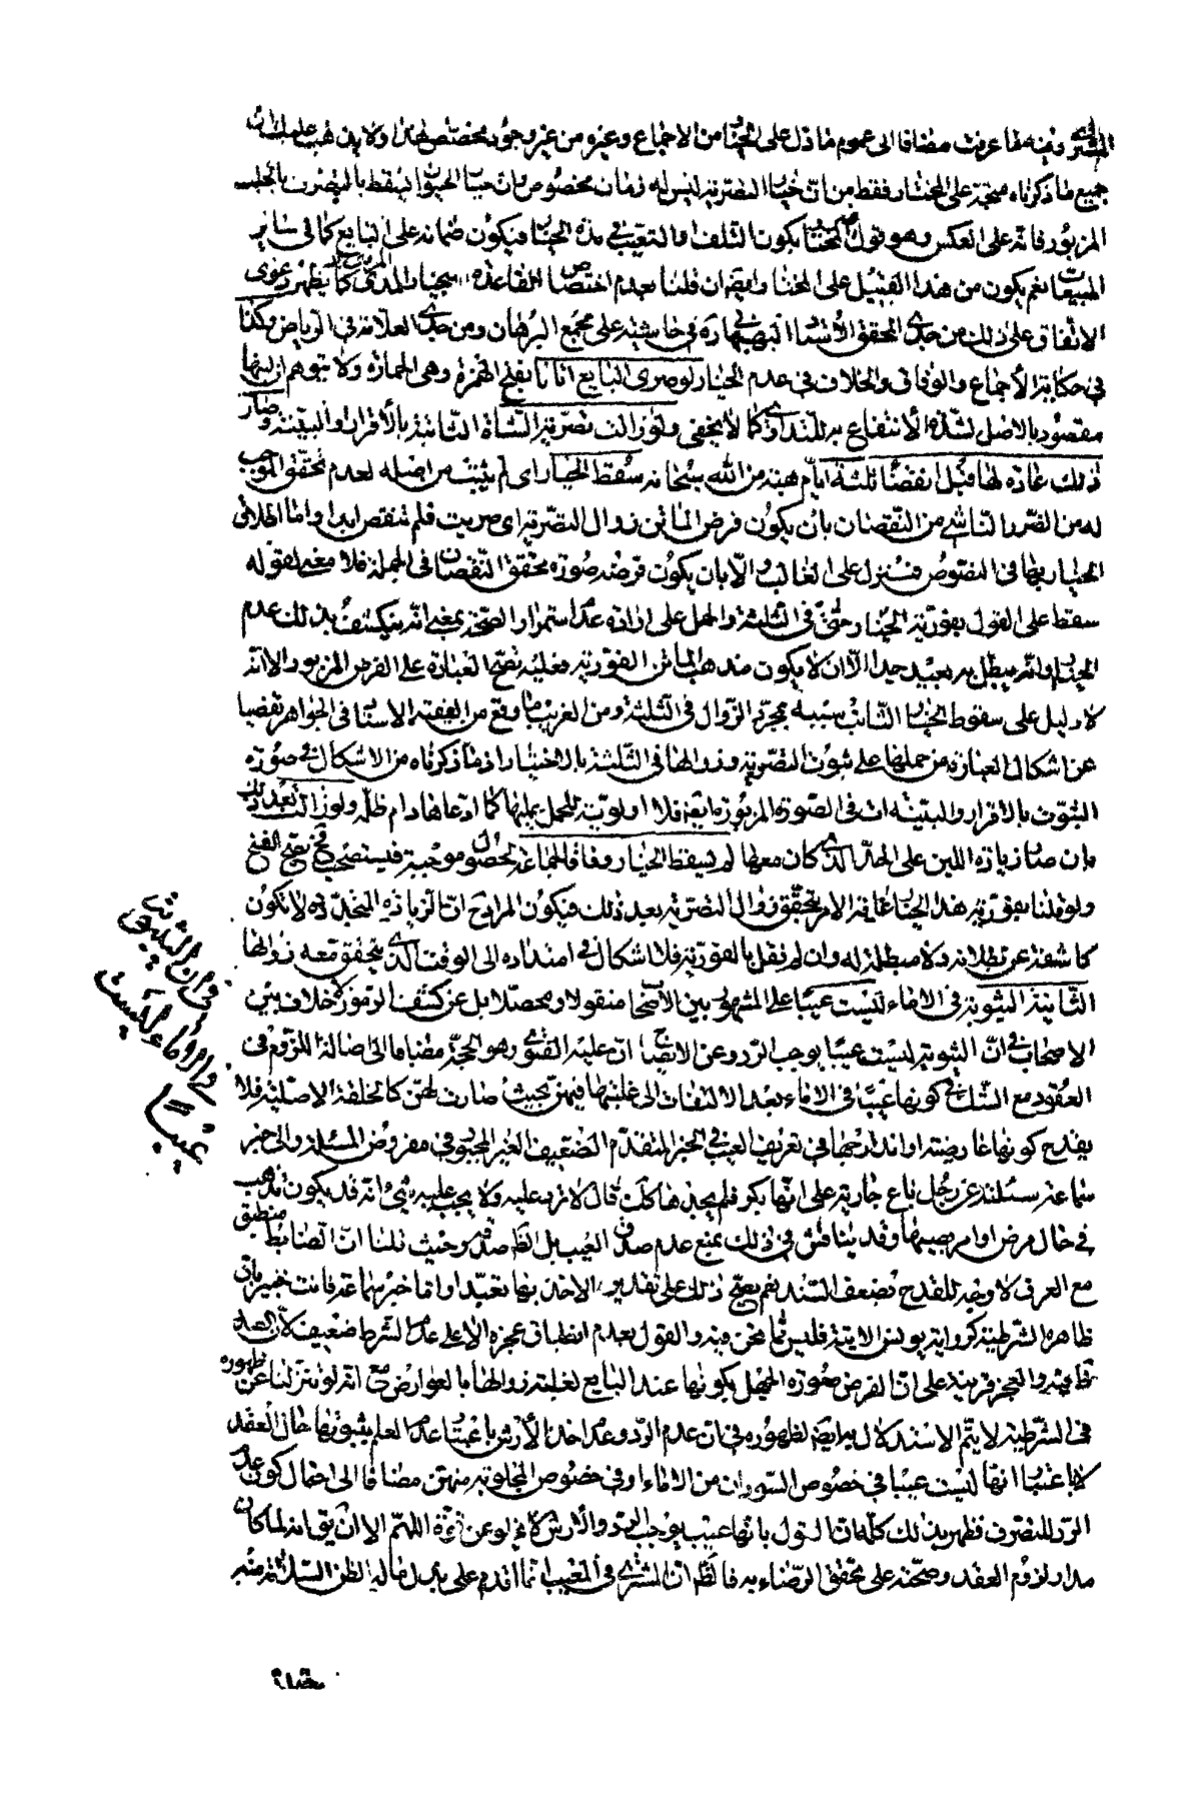 المشترى وفيه ما عرفت مضافا الى عموم ما دل على الخيار من الاجماع وغيره من غير وجود مخصص لهذا ولا يذهب عليك ان
جميع ما ذكرناه متجه على المختار فقط من ان خيار التصرية ليس له زمان مخصوص وان خيار الحيوان يسقط بالتصرف بالحلب
المزبور فانه على العكس وهو قول بكون التلف والتعيب في مدة الخيار فيكون ضمانه على البايع كما في ساير
المبيعات نعم يكون من هذا القبيل على المختار وايضا ان قلنا بعدم اختصاص القاعدة بخيار المذكور كما يظهر دعوى
الاتفاق على ذلك من جدى المحقق الاستاد البهبهانى في حاشيته على مجمع البرهان ومن جدى العلامة في الرياض وكذا
في حكاية الاجماع والوفاق والخلاف في عدم الخيار لو صرى البايع اتانا بفتح الهمزة وهى الحمارة ولا يتوهم ان لبنها
مقصود بالاصل لشدة الانتفاع به للتداوى كما لا يخفى ولو زالت تصرية الشاة الثابتة بالاقرار والبينة وصار
ذلك عادة لها قبل انقضاء ثلثة ايام هبة من الله سبحانه سقط الخيار اى لم يثبت من اصله لعدم تحقق الموجب
له من الضرر الناشى من النقصان بان يكون فرض الماتن زوال التصرية اى صريت فلم تنقص ابدا واما اطلاق
الخيار بها في النصوص فمنزل على الغالب والا بان يكون فرضه صورة تحقق النقصان في الجملة فلا معنى لقوله
سقط على القول بفورية الخيار حتى في الثلثة والحمل على ارادة عدم استمرار الصحة بمعنى انه ينكشف بذلك عدم
الخيار وانه يبطل به بعيد جدا الا ان لا يكون مذهب الماتن الفورية فعليه تصح العبارة على الفرض المزبور والا انه
لا دليل على سقوط الخيار الثابت بسببه بمجرد الزوال في الثلثة ومن الغريب ما وقع من الفقيه الاستاد في الجواهر تفصيا
عن اشكال العبارة من حملها على ثبوت التصرية وزوالها في الثلثة بالاختبار اذ ما ذكرناه من الاشكال في صورة
الثبوت بالاقرار والبينة ات في الصورة المزبورة ايضا فلا اولوية للحمل عليها كما ادعاها دام ظله ولو زالت بعد ذلك
بان صار زيادة اللبن على الحد الذى كان معها لم يسقط الخيار وفاقا لجماعة لحصول موجبه فيستصحب نعم يتجه الفسخ
ولو قلنا بفورية هذا الخيار غاية الامر تحقق زوال التصرية بعد ذلك فيكون المراد ح ان الزيادة المتجددة لا تكون
كاشفة عن بطلانه ولا مبطلة له وان لم نقل بالفورية فلا اشكال في امتداده الى الوقت الذى يتحقق معه زوالها
الثانية الثيوبة في الاماء ليست عيبا على المشهور بين الاصحاب منقولا ومحصلا بل عن كشف الرموز لا خلاف بين
الاصحاب في ان الثيوبة ليست عيبا يوجب الرد وعن الايضاح ان عليه الفتوى وهو الحجة مضافا الى اصالة اللزوم في
العقود مع الشك في كونها عيبا في الاماء بعد الالتفات الى غلبتها فيهن بحيث صارت لهن كالخلقة الاصلية فلا
يقدح كونها عارضية او اندراجها في تعريف العيب في الخبر المتقدم الضعيف الغير المجبور في مفروض المسئلة والى خبر
سماعة سئلته عن رجل باع جارية على انها بكر فلم يجدها كذلك قال لا ترد عليه ولا يجب عليه شئ انه قد يكون تذهب
في حال مرض او امر يصيبها وقد يناقش في ذلك بمنع عدم صدق العيب بل الظ صدقه وحيث قلنا ان الضابط منطبق
مع العرف لا وجه للقدح بضعف السند نعم يصح ذلك على تقدير الاخذ بها تعبدا واما خبر سماعة فانت خبير بان
ظاهره الشرطية كرواية يونس الاتية فليس مما نحن فيه والقول بعدم انطباق عجزه الا على عدم الشرط ضعيف لان الصدر
ظاهر فيه والعجز قرينة على ان الفرض صورة الجهل بكونها عند البايع لغلبة زوالها بالعوارض مع انه لو تنزلنا عن ظهوره
في الشرطية لا يتم الاستدلال به ايضا لظهوره في ان عدم الرد وعدم اخذ الارش باعتبار عدم العلم بثبوتها حال العقد
لا باعتبار انها ليست عيبا في خصوص السوريان من الاماء او في خصوص المجلوبة منهن مضافا الى احتمال كون عدم
الرد للتصرف فظهر بذلك كله ان القول بانها عيب يوجب الرد والارش لا يخلو عن قوة اللهم الا ان يق انه لما كان
مدار لزوم العقد وصحته على تحقق الرضاء به فالظ ان المشترى في المعيب انما اقدم على بذل ماله لظن السلامة فيه
في ان الثيوبة
في الاماء ليست
عيبا